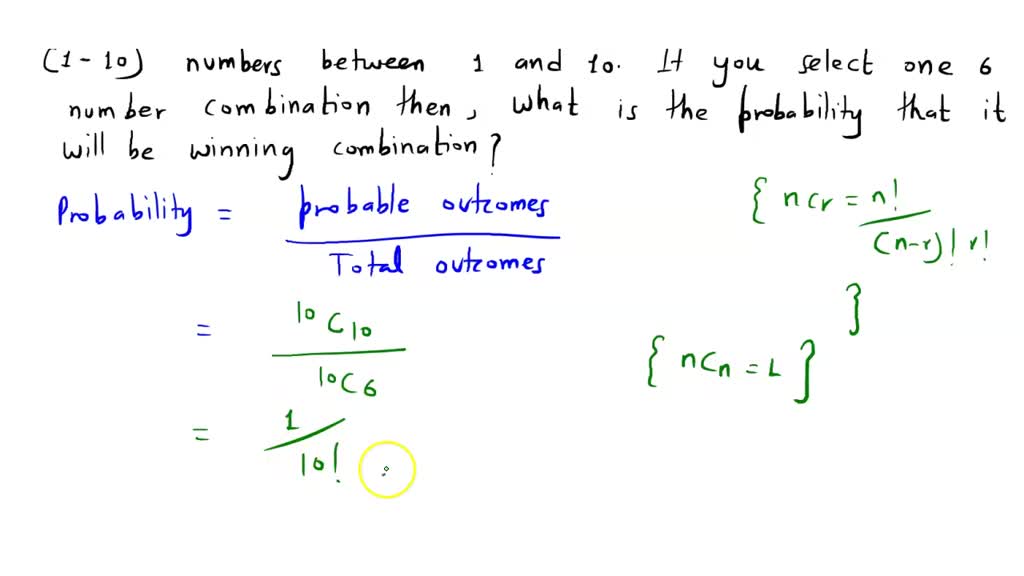 (1-10) numbers between 1 and 10. If you select one 6
number combination then, what is the probability that it
will be winning combination?
Probability = probable outcomes
Total outcomes
{ nCr = n!
(n-r)! r!
}
= 10C10
10C6
{ nCn = 1 }
= 1
10!